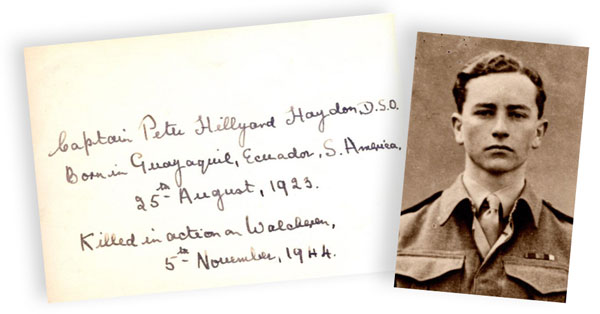 Captain Peter Hillyard Haydon, D.S.O.
Born in Guayaquil, Ecuador, S. America,
25th August, 1923.
Killed in action on Walcheren,
5th November, 1944.